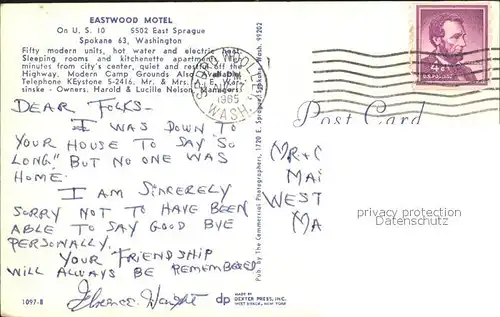 EASTWOOD MOTEL
On U. S. 10 5502 East Sprague
Spokane 63, Washington
Fifty modern units, hot water and electric heat.
Sleeping rooms and kitchenette apartments.
minutes from city's center, quiet and restful off the
Highway. Modern Camp Grounds Also Available.
Telephone KEystone 5-2416. Mr. & Mrs. A. E. Wer-
sinske - Owners. Harold & Lucille Nelson, Managers.
1965
WASH.
4¢
U.S. POSTAGE
Post Card
DEAR FOLKS-
I WAS DOWN TO
YOUR HOUSE TO SAY "SO
LONG," BUT NO ONE WAS
HOME.
I AM SINCERELY
SORRY NOT TO HAVE BEEN
ABLE TO SAY GOOD BYE
PERSONALLY.
YOUR FRIENDSHIP
WILL ALWAYS BE REMEMBERED
Florence
1097-B
dp
MADE BY
DEXTER PRESS, INC.
WEST NYACK, NEW YORK
Pub. by The Commercial Photographers, 1720 E. Sprague, Spokane, Wash. 99202
MR + 
MAI
WEST
MA
privacy protection
Oldthing.com